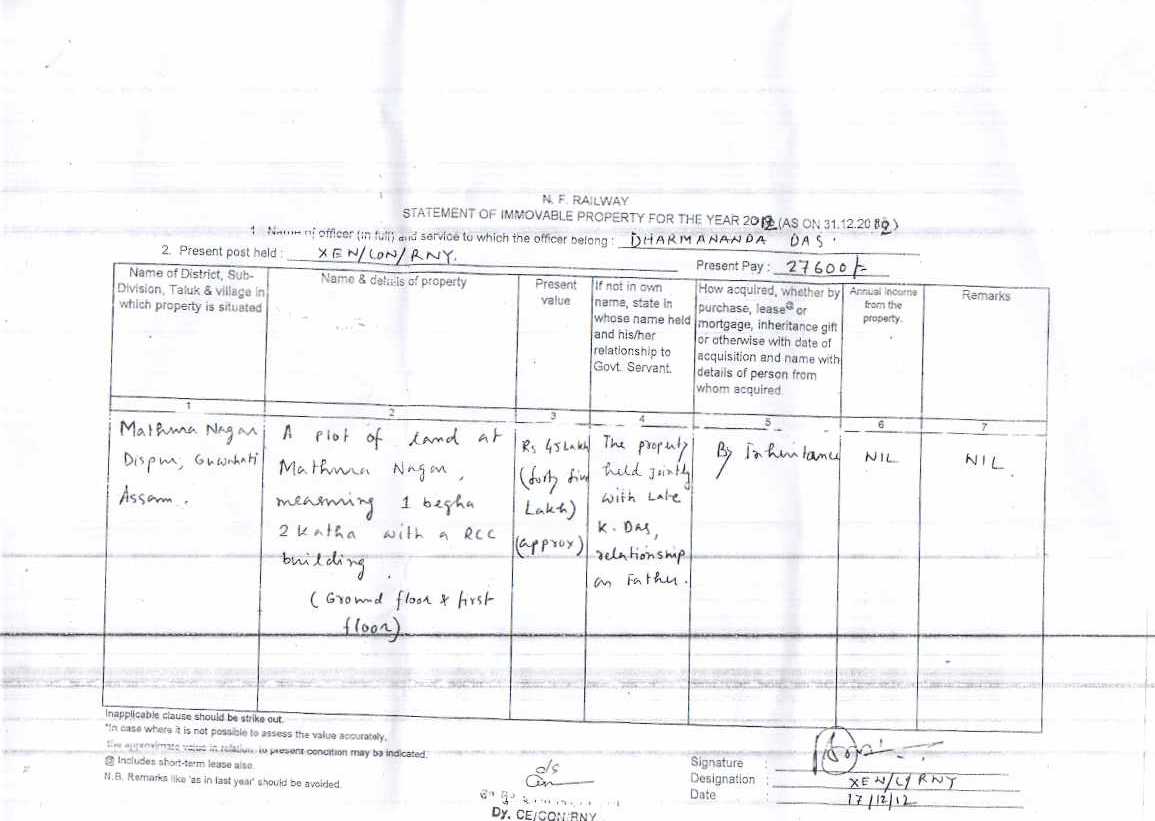 N. F. RAILWAY
STATEMENT OF IMMOVABLE PROPERTY FOR THE YEAR 2012 (AS ON 31.12.2012)
1. Name of officer (in full) and service to which the officer belong : DHARMANANDA DAS.
2. Present post held : XEN/CON/RNY.
Present Pay : 27600/-
Name of District, Sub-
Division, Taluk & village in
which property is situated
Name & details of property
Present
value
If not in own
name, state in
whose name held
and his/her
relationship to
Govt. Servant.
How acquired, whether by
purchase, lease@ or
mortgage, inheritance gift
or otherwise with date of
acquisition and name with
details of person from
whom acquired
Annual Income
from the
property.
Remarks
1 2 3 4 5 6 7
Mathura Nagar
Dispur, Guwahati
Assam.
A plot of land at
Mathura Nagar,
measuring 1 begha
2 Katha with a RCC
building.
(Ground floor & first
floor)
Rs 45 Lakh
(forty five
Lakh)
(approx)
The property
held jointly
with Late
K. Das,
relationship
as Father.
By Inheritance
NIL
NIL.
Inapplicable clause should be strike out.
*In case where it is not possible to assess the value accurately,
the approximate value in relation to present condition may be indicated.
@ Includes short-term lease also.
N.B. Remarks like 'as in last year' should be avoided.
Dy. CE/CON/RNY
Signature :
Designation : XEN/C/RNY
Date : 17/12/12